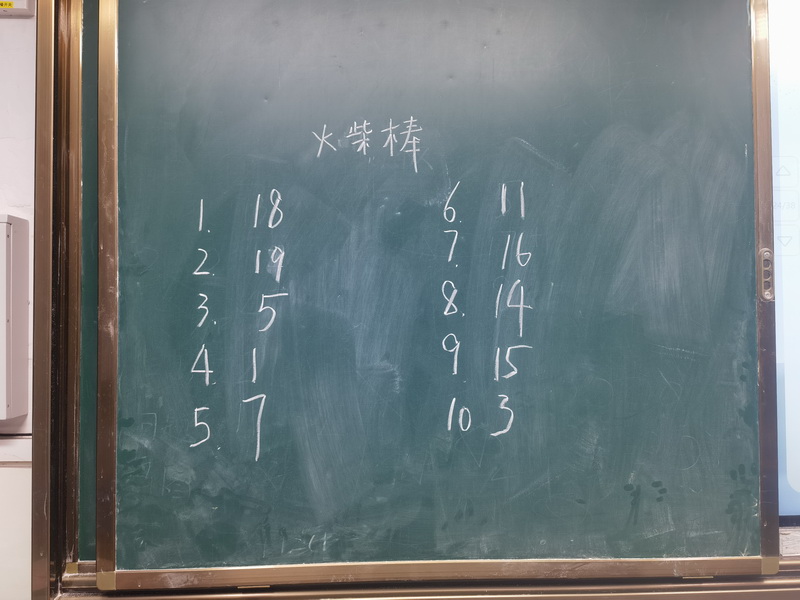 火柴棒
1. 18
2. 19
3. 5
4. 1
5. 7
6. 11
7. 16
8. 14
9. 15
10 3